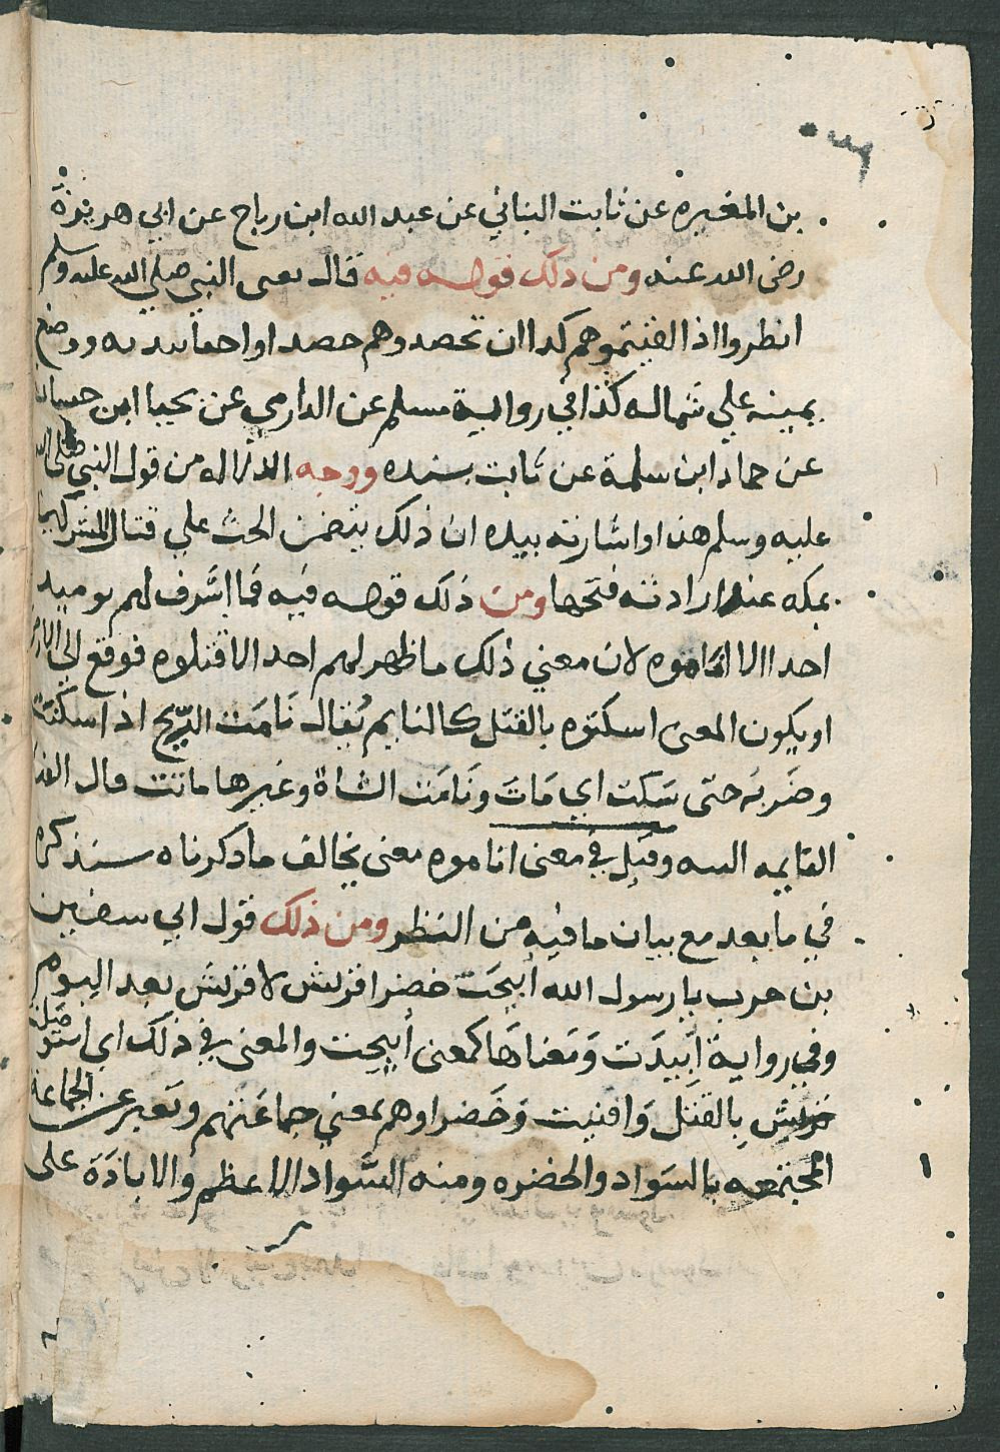 بن المغيره عن ثابت البناني عن عبد الله ابن رباح عن ابي هريرة
رضى الله عنه ومن ذلك قوله فيه قال يعنى النبي صلي الله عليه وسلم
انظروا اذا لقيتموهم كدا ان تحصدوهم حصدا واحفا بيده ووضع
يمينه علي شماله كذا في رواية مسلم عن الدارمي عن يحيا ابن حسان
عن حماد ابن سلمة عن ثابت بسنده ووجه الدلاله من قول النبي صلى الله
عليه وسلم هذا واشارته بيده ان ذلك يتضمن الحث علي قتال المشركين
بمكه عند ارادته فتحها ومن ذلك قوله فيه فما اشرف لهم يوميد
احد الا اناموه لان معني ذلك ما ظهر لهم احد الا قتلوه فوقع الي الارض
او يكون المعنى اسكتوه بالقتل كالنايم يُقال نَامَت الرّيح اذا سكنت
وضَربَه حتى سَكت اي مَاتَ ونَامَت الشاة وغيرها ماتت قال الفرا
القايمه الميته وقيل في معنى اناموه معنى يخالف ما دكرناه سنذكره
في ما بعد مع بيان ما فيه من النظر ومن ذلك قول ابي سفين
بن حرب يا رسول الله أبيحَت خضرا قريش لا قريش بعد اليوم
وفي رواية اُبيدَت وَمَعناهَا كمعنى أبيحت والمعنى في ذلك اي استوصلت
قريش بالقتل وَافنيت وَخَضراوهم بمعني جماعَتهم ويَعبر عن الجماعة
المجتمعه بالسَواد والخضره ومنه السَّواد الاعظم والابادَة على